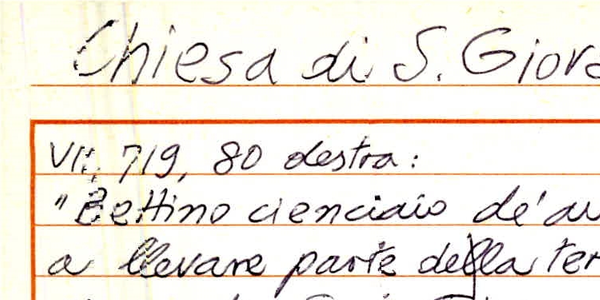 Chiesa di S. Giova
VII, 719, 80 destra:
"Bettino cienciaio de' au
a llevare parte della ter